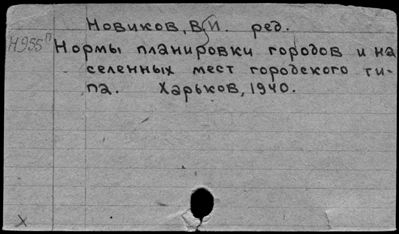 Новиков, В. И. ред.
Н955п
Нормы планировки городов и на
селенных мест городского ти-
па. Харьков, 1940.
х